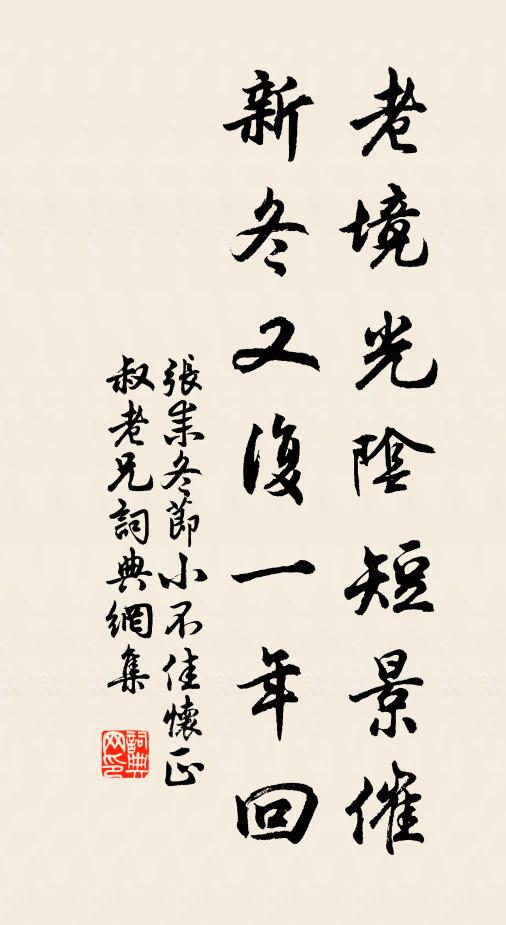 老境光陰短景催
新冬又復一年回
張耒冬節小不佳懷正
叔老兄詞典網集
詞典
网印